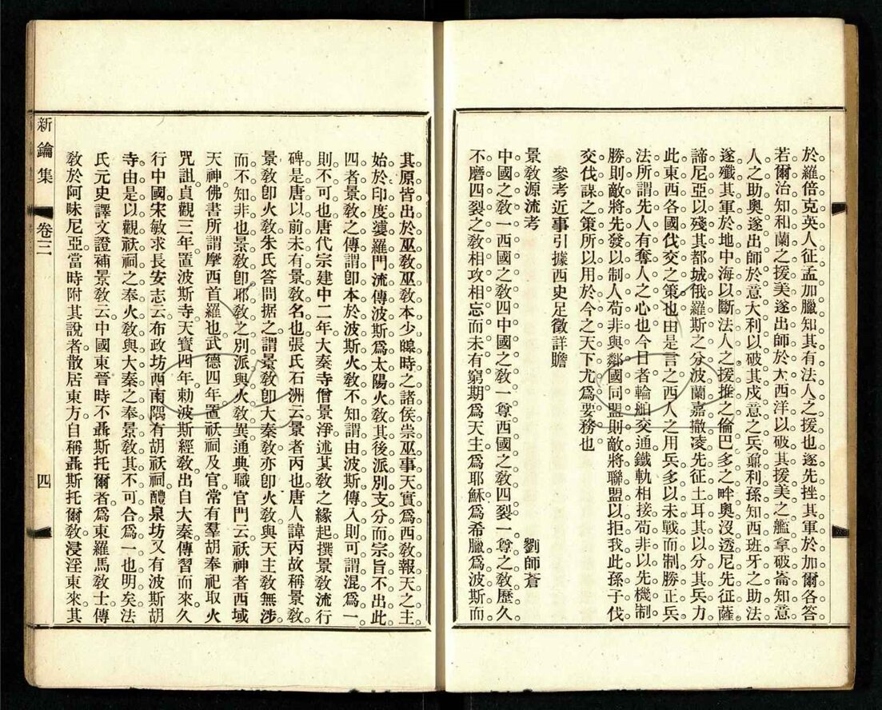 於羅倍克英人征孟加臘知其有法人之援也遂先挫其軍於加爾各答
若爾治知和蘭之援美遂出師於大西洋以破其援美之艦拿破崙知意
人之助奧遂出師於意大利以破其戍意之兵鼐利孫知西班牙之助法
遂殲其軍於地中海以斷法人之援推之倫巴多之畔奧沒透尼先征薩
諦尼亞以殘其都城俄羅斯之分波蘭嘉撒凌先征土耳其以分其兵力
此東西各國伐交之策也由是言之西人之用兵多以未戰而制勝正兵
法所謂先人有奪人之心也今日者輪舶交通鐵軌相接苟非以先機制
勝則敵將先發以制人苟非與鄰國同盟則敵將聯盟以拒我此孫子伐
交伐謀之策所以用於今之天下尤爲要務也
參考近事引據西史足徵詳贍
景敎源流考
劉師蒼
中國之敎一西國之敎四中國之敎一尊西國之敎四裂一尊之敎歷久
不磨四裂之敎相攻相忘而未有窮期爲天主爲耶穌爲希臘爲波斯而
新籥集
卷三
四
其原皆出於巫敎巫敎本少皞時之諸侯崇巫事天實爲西敎報天之主
始於印度㜑羅門流傳波斯爲太陽火敎其後派別支分而宗旨不出此
四者景敎之傳謂卽本於波斯火敎不知謂由波斯傳入則可謂混爲一
則不可也唐代宗建中二年大秦寺僧景淨述其敎之緣起撰景敎流行
碑是唐以前未有景敎名也張氏石洲云景者丙也唐人諱丙故稱景敎
景敎卽火敎朱氏答問据之謂景敎卽大秦敎亦卽火敎與天主敎無涉
而不知非也景敎卽耶敎之別派與火敎異通典職官門云祅神者西域
天神佛書所謂摩西首羅也武德四年置祅祠及官常有羣胡奉祀取火
咒詛貞觀三年置波斯寺天寶四年勅波斯經敎出自大秦傳習而來久
行中國宋敏求長安志云布政坊西南隅有胡祅祠醴泉坊又有波斯胡
寺由是以觀祅祠之奉火敎與大秦之奉景敎其不可合爲一也明矣法
氏元史譯文證補景敎云中國東晉時不聶斯托爾者爲東羅馬敎士傳
敎於阿昧尼亞當時附其說者散居東方自稱聶斯托爾敎浸淫東來其